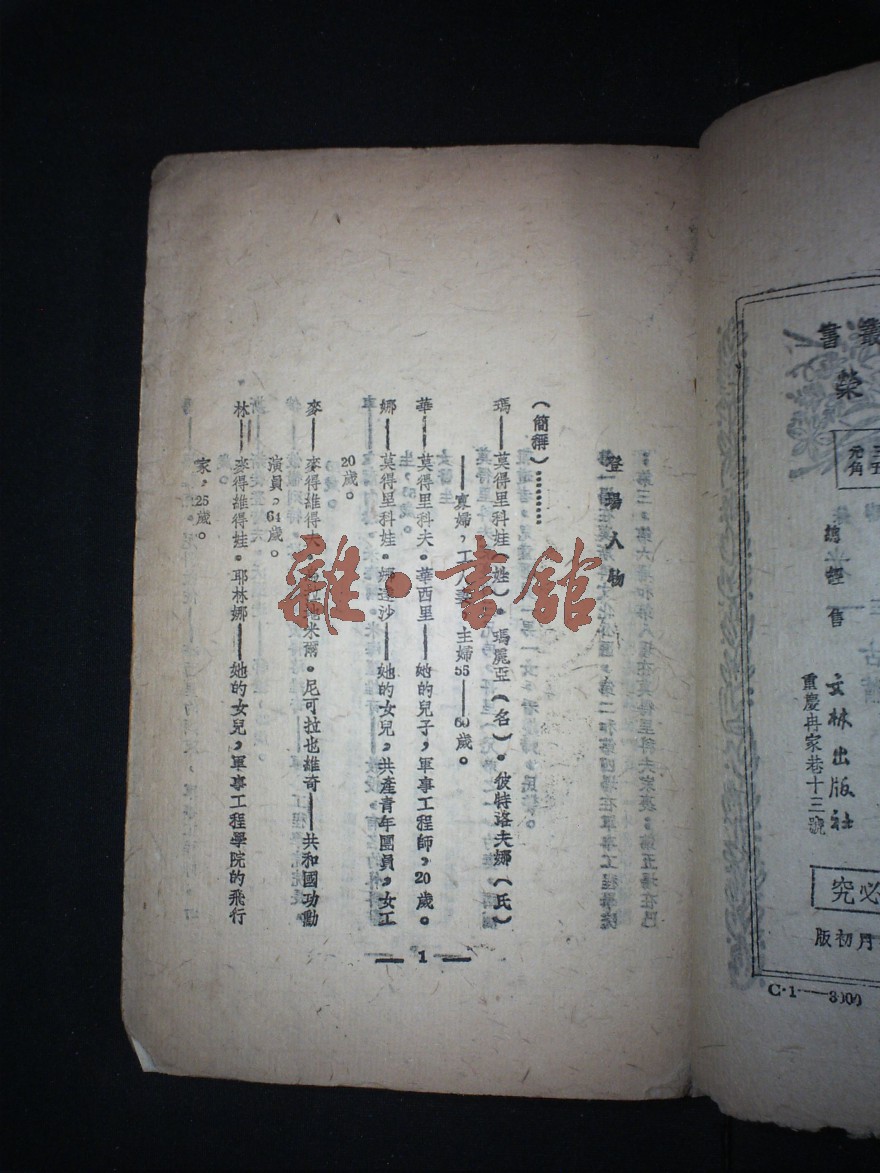 叢書
榮
三元
五角
總經售
文林出版社
重慶冉家巷十三號
必究
月初版
C·1——3000
登場人物
（簡稱）…………
瑪——莫得里科娃（姓）。瑪麗亞（名）。彼特洛夫娜（氏）
——寡婦，工人妻。主婦55——60歲。
華——莫得里科夫。華西里——她的兒子，軍事工程師，20歲。
娜——莫得里科娃。娜達沙——她的女兒，共產青年團員，女工
20歲。
麥——麥得維得夫。米爾。尼可拉也維奇——共和國功勳
演員，64歲。
林——麥得維得娃。耶林娜——她的女兒，軍事工程學院的飛行
家，25歲。
—— 1 ——
雜·書館